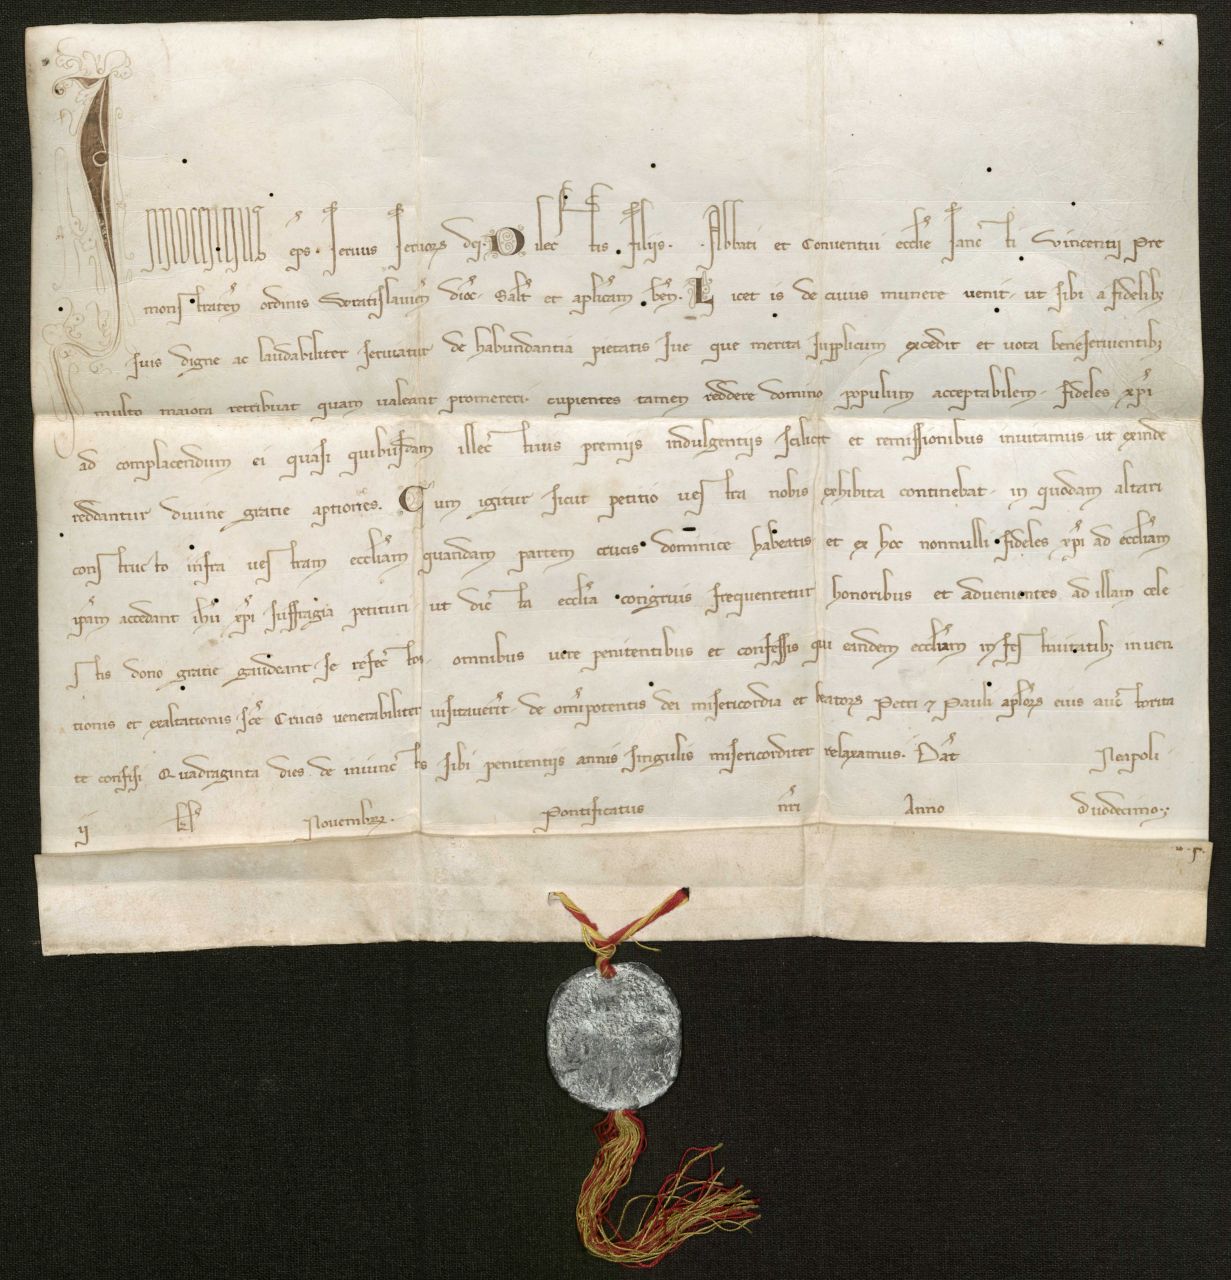 Innocentius ep̄s . servus servorꝝ dei . Dilectis filiis . . Abbati et Conventui ecclīe sancti Vincentii Pre
monstratēn ordinis Wratislaviēn diōc . Salt̄ et aplicām bēn . Licet is de cuius munere venit . ut sibi a fidelibꝫ
suis digne ac laudabiliter serviatur de habundantia pietatis sue que merita supplicum excedit et vota beneservientibꝫ
multo maiora retribuat quam valeant promereri . cupientes tamen reddere domino populum acceptabilem . fideles xp̄i
ad complacendum ei quasi quibusdam illectivis premiis indulgentiis scilicet et remissionibus invitamus . ut exinde
reddantur divine gratie aptiores . Cum igitur sicut petitio vestra nobis exhibita continebat . in quodam altari
constructo infra vestram ecclīam quandam partem crucis dominice habeatis et ex hoc nonnulli fideles xp̄i ad ecclīam
ip̄am accedant ih̄u xp̄i suffragia petituri . ut dicta ecclīa congruis frequentetur honoribus et advenientes ad illam cele
stis dono gratie gaudeant se refectos . omnibus vere penitentibus et confessis qui eandem ecclīam in festivitatibꝫ inven
tionis et exaltationis sc̄e Crucis venerabiliter visitaverīt . de om̄ipotentis dei misericordia et beatorꝝ Petri ⁊ Pauli apl̄orꝝ eius auctorita
te confisi Quadraginta dies de iniunctis sibi penitentiis annis singulis misericorditer relaxamus . Dat̄ Neapoli
ij kl̄ Novembrꝫ . Pontificatus nr̄i Anno duodecimo .